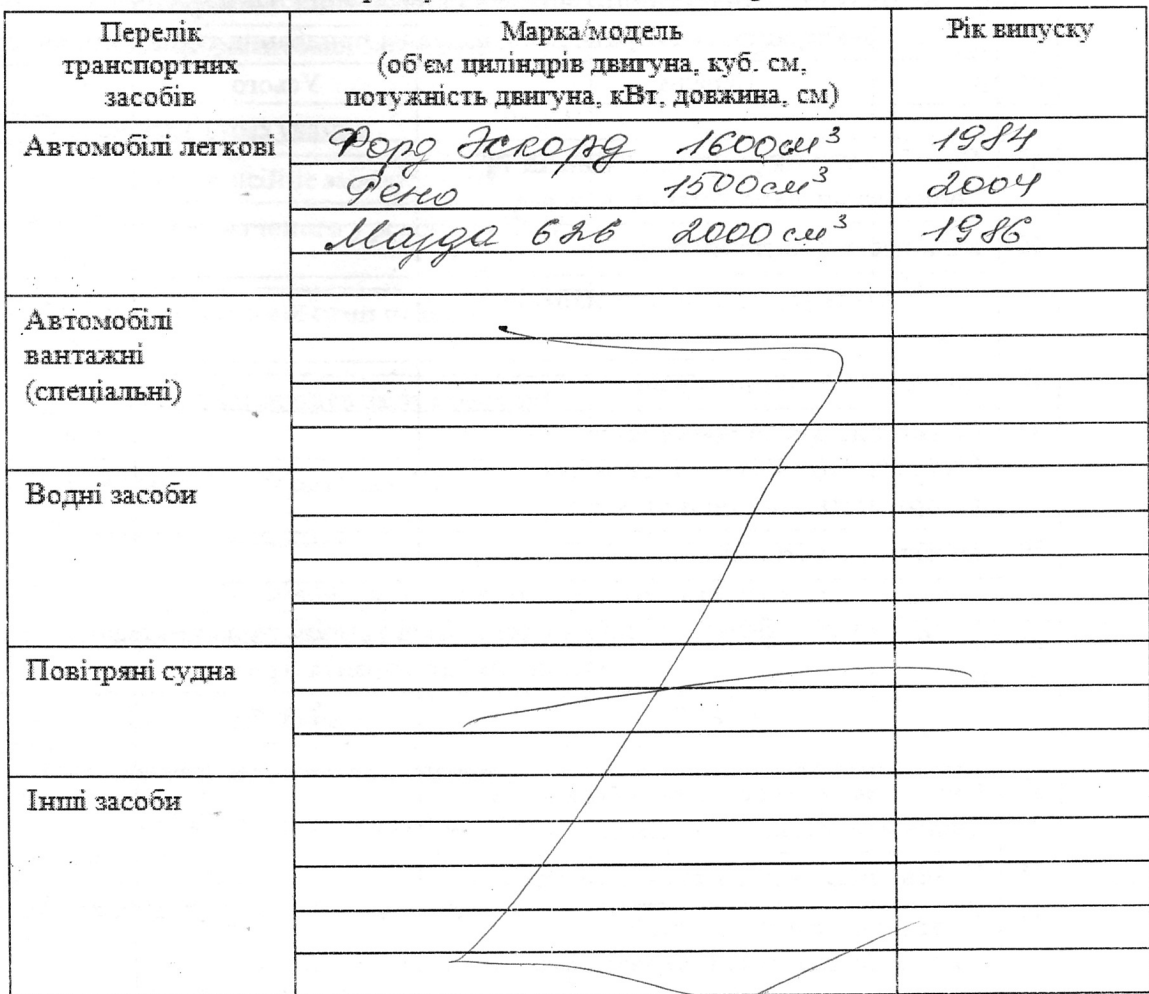 Перелік транспортних засобів
Марка/модель (об'єм циліндрів двигуна, куб. см, потужність двигуна, кВт, довжина, см)
Рік випуску
Автомобілі легкові
Форд Эскорд 1600см³ 1984
Рено 1500см³ 2004
Мазда 626 2000см³ 1986
Автомобілі
вантажні
(спеціальні)
Водні засоби
Повітряні судна
Інші засоби